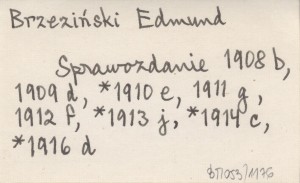 Brzeziński Edmund
Sprawozdanie 1908 b,
1909 d, *1910 e, 1911 g,
1912 f, *1913 j, *1914 c,
*1916 d